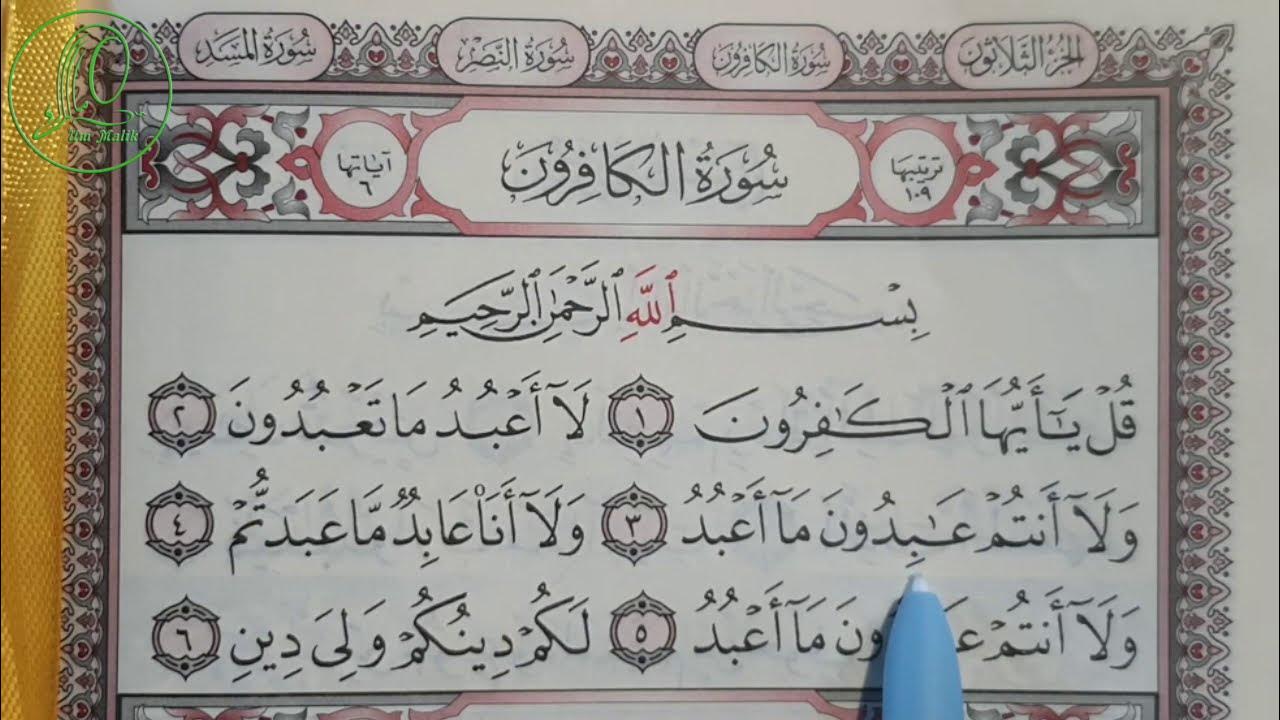 الجزء الثلاثون
سورة الكافرون
سورة النصر
سورة المسد
Um Malik
ترتيبها ١٠٩
سورة الكافرون
آياتها ٦
بِسْمِ ٱللَّهِ ٱلرَّحْمَٰنِ ٱلرَّحِيمِ
قُلْ يَٰٓأَيُّهَا ٱلْكَٰفِرُونَ ١ لَآ أَعْبُدُ مَا تَعْبُدُونَ ٢
وَلَآ أَنتُمْ عَٰبِدُونَ مَآ أَعْبُدُ ٣ وَلَآ أَنَا۠ عَابِدٌ مَّا عَبَدتُّمْ ٤
وَلَآ أَنتُمْ عَٰبِدُونَ مَآ أَعْبُدُ ٥ لَكُمْ دِينُكُمْ وَلِىَ دِينِ ٦